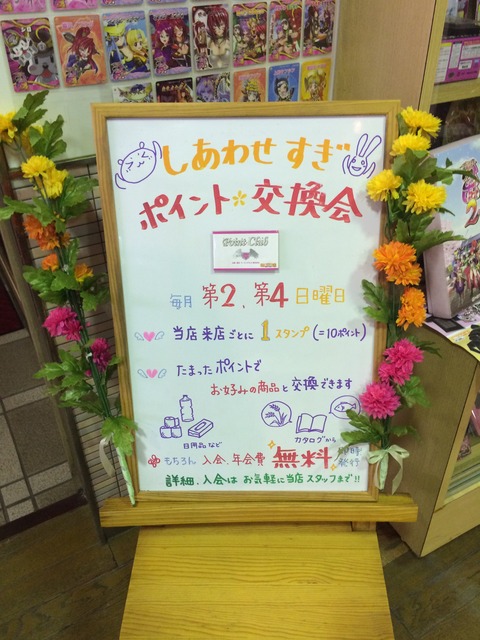 しあわせ すぎ
ポイント 交換会
毎月 第2、第4 日曜日
当店 来店ごとに 1 スタンプ (=10ポイント)
たまったポイントで
お好みの商品と交換できます
日用品など
カタログから
もちろん 入会、年会費 無料 即時発行
詳細、入会は お気軽に当店スタッフまで!!